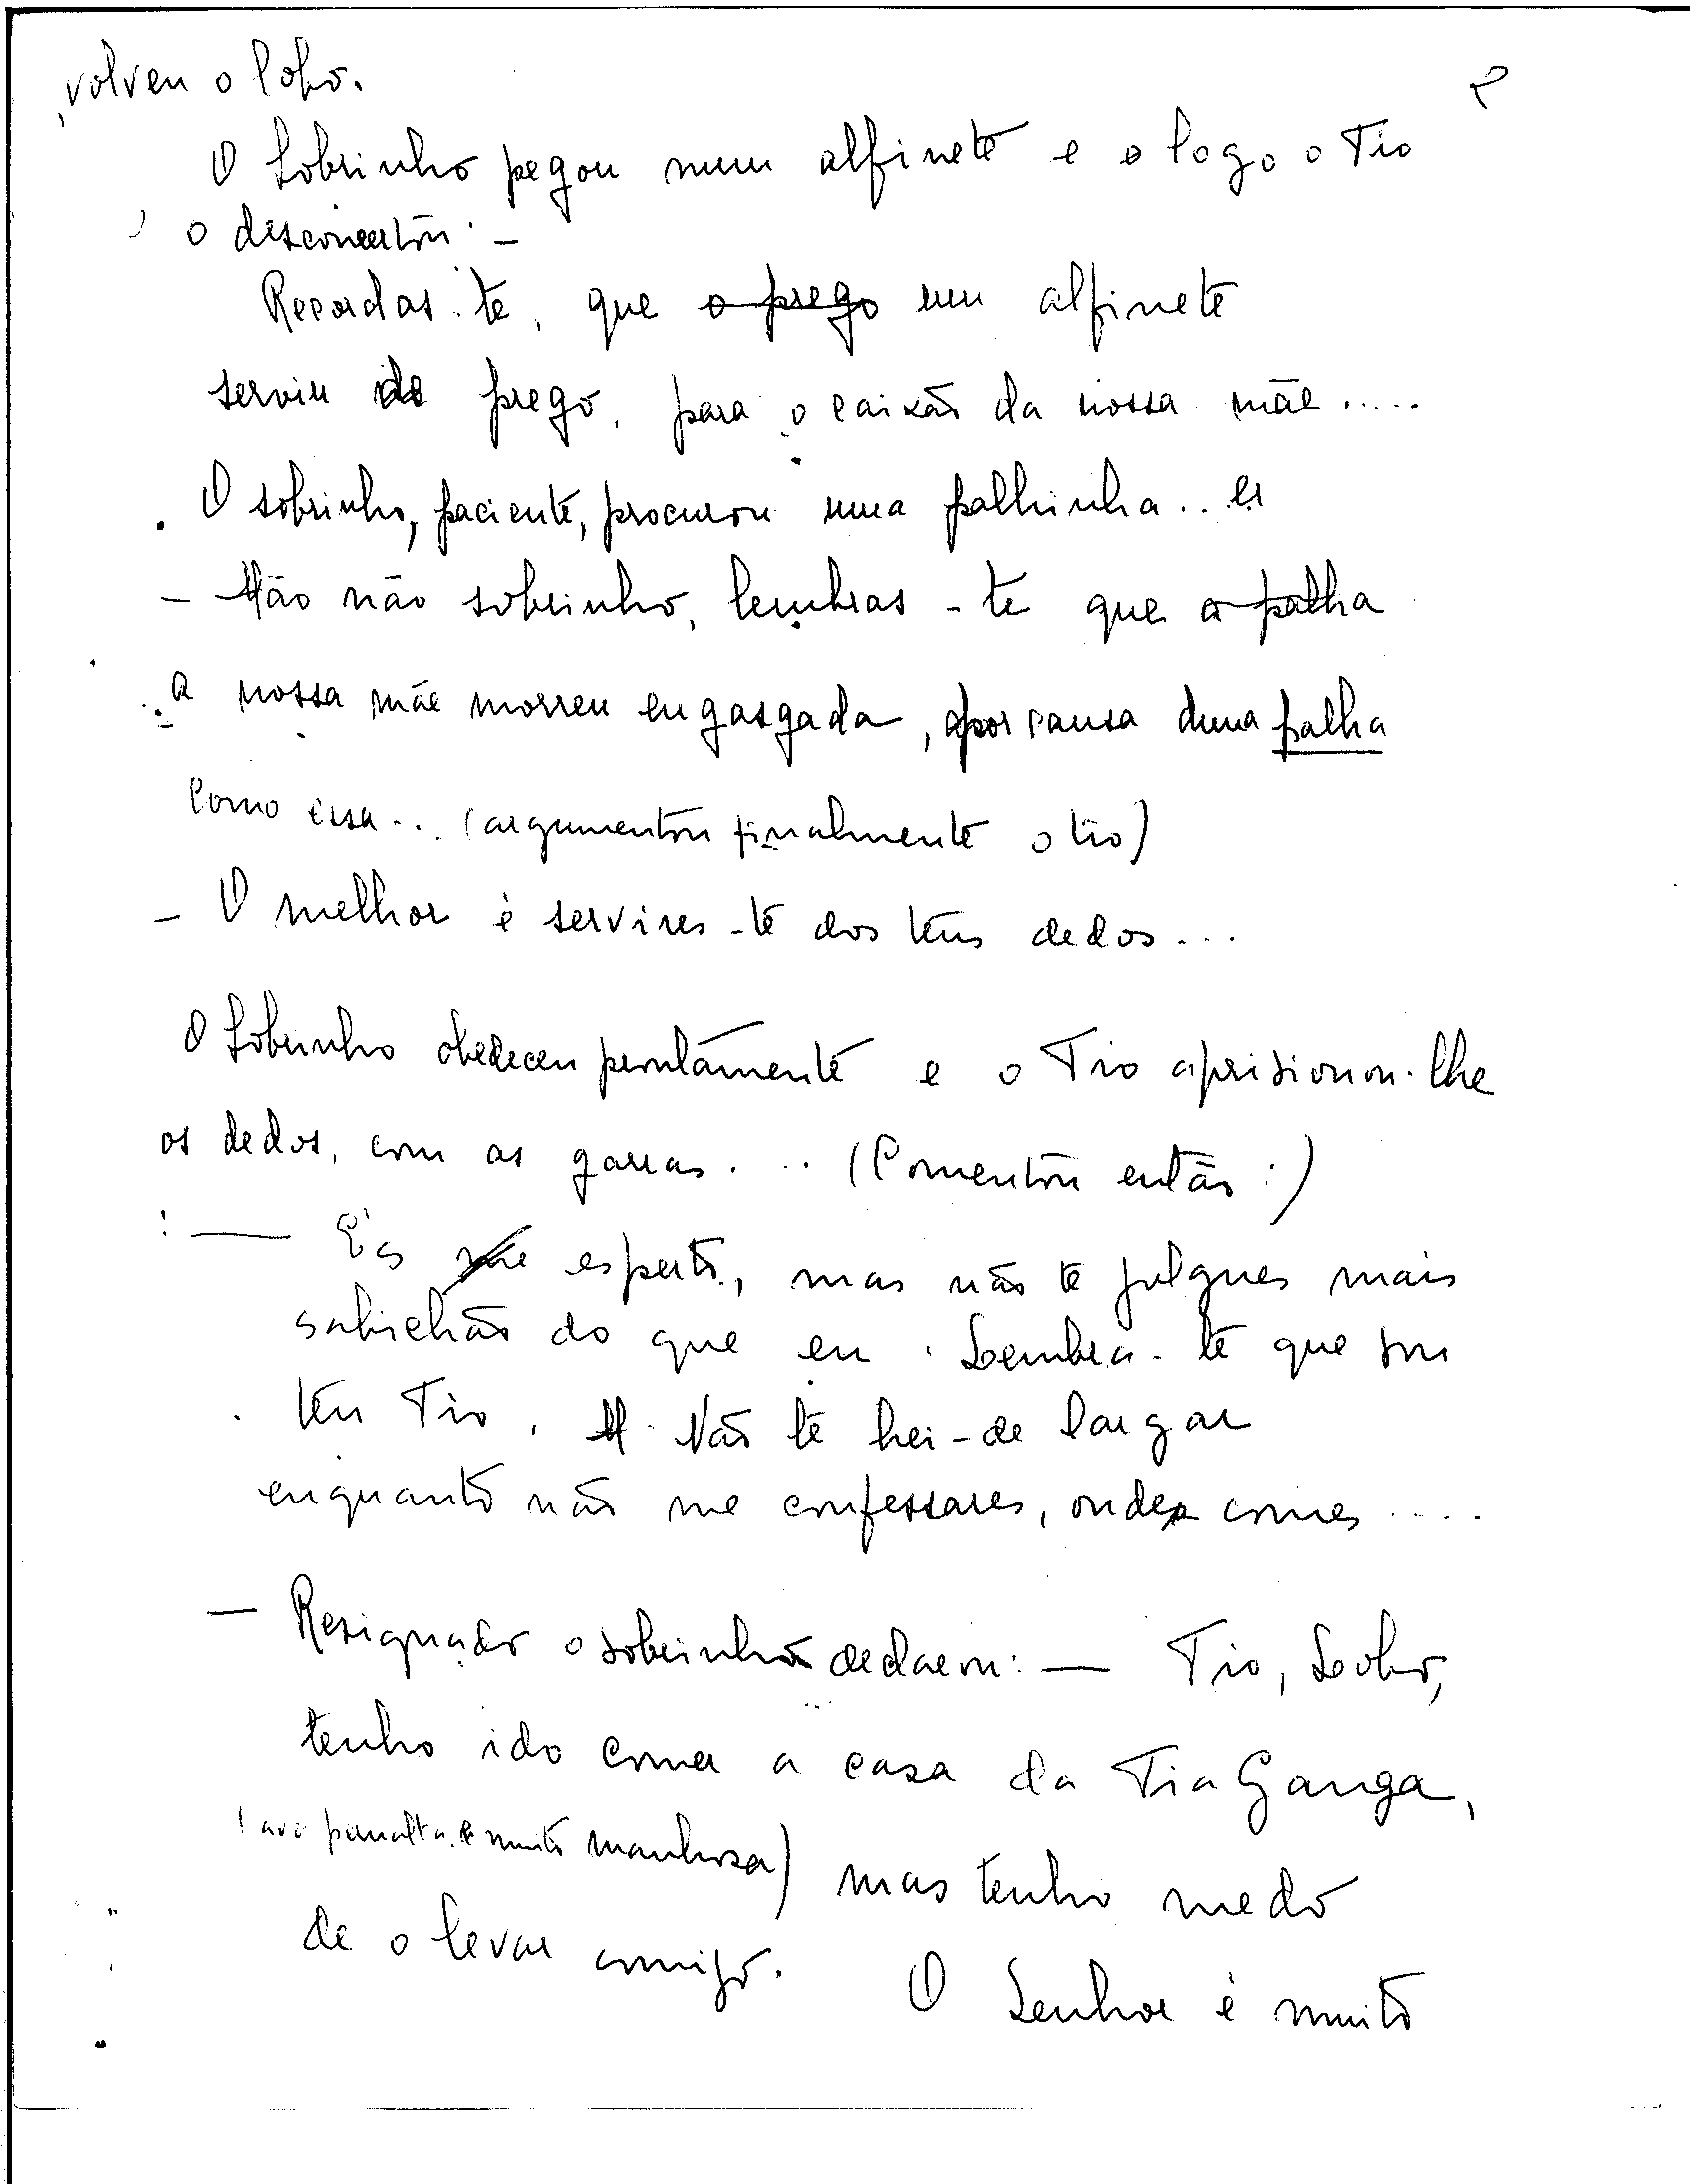 , volveu o lobo.
2
O Sobrinho pegou num alfinete e o logo o Tio
o desconcertou: —
Recordas-te, que o prego um alfinete
serviu de prego, para o caixão da nossa mãe.....
O sobrinho, paciente, procurou uma palhinha...
— Não não sobrinho, lembras-te que a palha
a nossa mãe morreu engasgada, por causa duma palha
como essa... (argumentou finalmente o tio)
— O melhor é servires-te dos teus dedos...
O Sobrinho obedeceu prontamente e o Tio aprisionou-lhe
os dedos, com as garras... (Comentou então:)
: — És esperto, mas não te julgues mais
sabichão do que eu. Lembra-te que sou
teu Tio. Não te hei-de largar
enquanto não me confessares, onde comes....
— Resignado o sobrinho declarou: — Tio, Lobo,
tenho ido comer a casa da Tia Ganga,
(ave pernalta e muito manhosa) mas tenho medo
de o levar comigo. O Senhor é muito